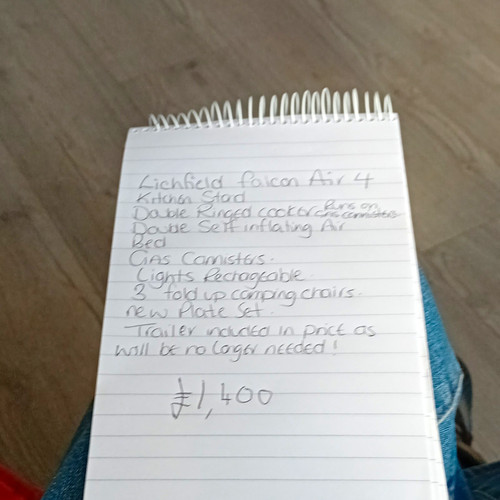 Lichfield falcon Air 4
Kitchen Stand
Double Ringed cooker Runs on gas cannisters
Double Self inflating Air
Bed
GAS Cannisters.
Lights Rechageable.
3 fold up camping chairs.
new Plate Set.
Trailer included in price as
will be no longer needed!
£1,400